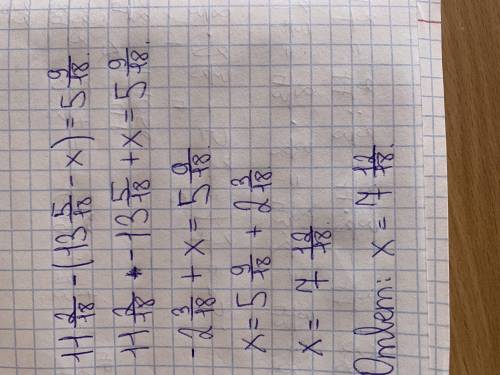 11 2/18 - (13 5/18 - x) = 5 9/18.
11 2/18 - 13 5/18 + x = 5 9/18.
-2 3/18 + x = 5 9/18.
x = 5 9/18 + 2 3/18.
x = 7 12/18.
Ответ: x = 7 12/18.